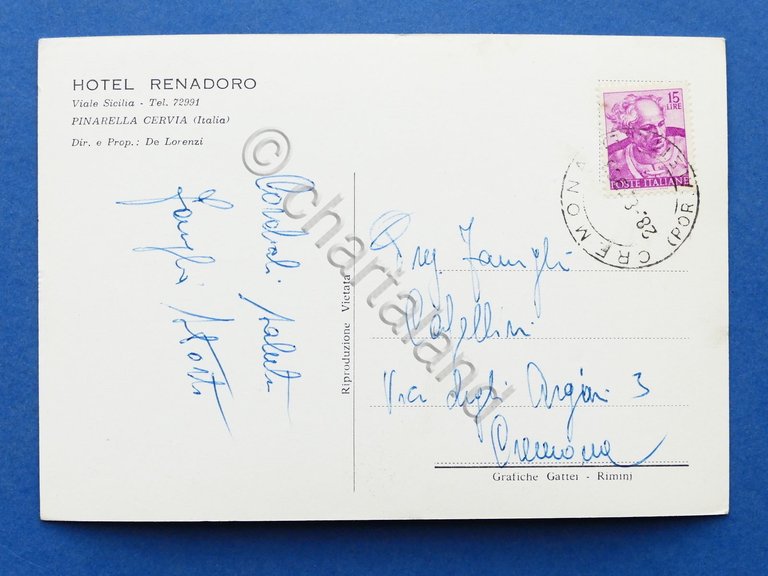 HOTEL RENADORO
Viale Sicilia - Tel. 72991
PINARELLA CERVIA (Italia)
Dir. e Prop.: De Lorenzi
Cordiali saluti
Famiglia
Riproduzione Vietata
15
LIRE
POSTE ITALIANE
CREMONA
(PORTA
28-3
Preg. Famiglia
Via Argini 3
Cremona
Grafiche Gattei - Rimini
© chartaland